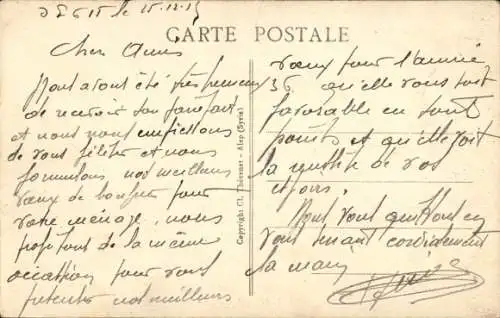 le 15-12-35
CARTE POSTALE
Cher Amis
Nous avons été très heureux
de recevoir ton faire part
et nous nous empressons
de vous féliciter et nous
formulons nos meilleurs
vœux de bonheur pour
votre ménage, nous
profitons de la même
occasion pour vous
présenter nos meilleurs
Copyright Cl. Thévenet - Alep (Syrie)
vœux pour l'année
36 qu'elle vous soit
favorable en tout
points et qu'elle soit
la de vos
espoirs.
Nous vous quittons en
vous serrant cordialement
la main